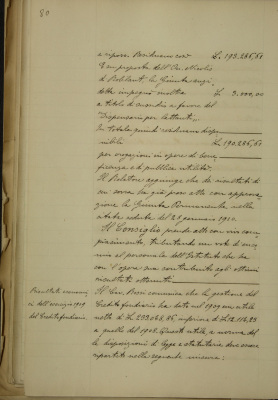 80
e sopra Residuano così L. 193.286,61
Su proposta dell'On. Merlo
la Giunta
detta impegnò inoltre L. 3.000,00
a titolo di sussidio a favore del
"Dispensario per lattanti".
In totale quindi residuano dispo-
nibili L. 190.286,61
per erogazioni in opere di bene-
ficenza e di pubblica utilità.
Il Relatore soggiunge che dei risultati di
cui sopra ha già preso atto con approva-
zione la Giunta Permanente nella
citata seduta del 25 gennaio 1910.
Il Consiglio prende atto con vivo com-
piacimento, tributando un voto di enco-
mio al personale dell'Istituto che ha
con l'opera sua contribuito agli ottimi
risultati ottenuti.
Risultato economi-
co dell'esercizio 1909
del Credito fondiario.
Il Cav. Rossi comunica che la gestione del
Credito fondiario ha dato nel 1909 un utile
netto di L. 233.068,85 superiore di L. 12.116,23
a quello del 1908. Questo utile, a norma del-
le disposizioni di legge e statutarie deve essere
ripartito nella seguente misura: